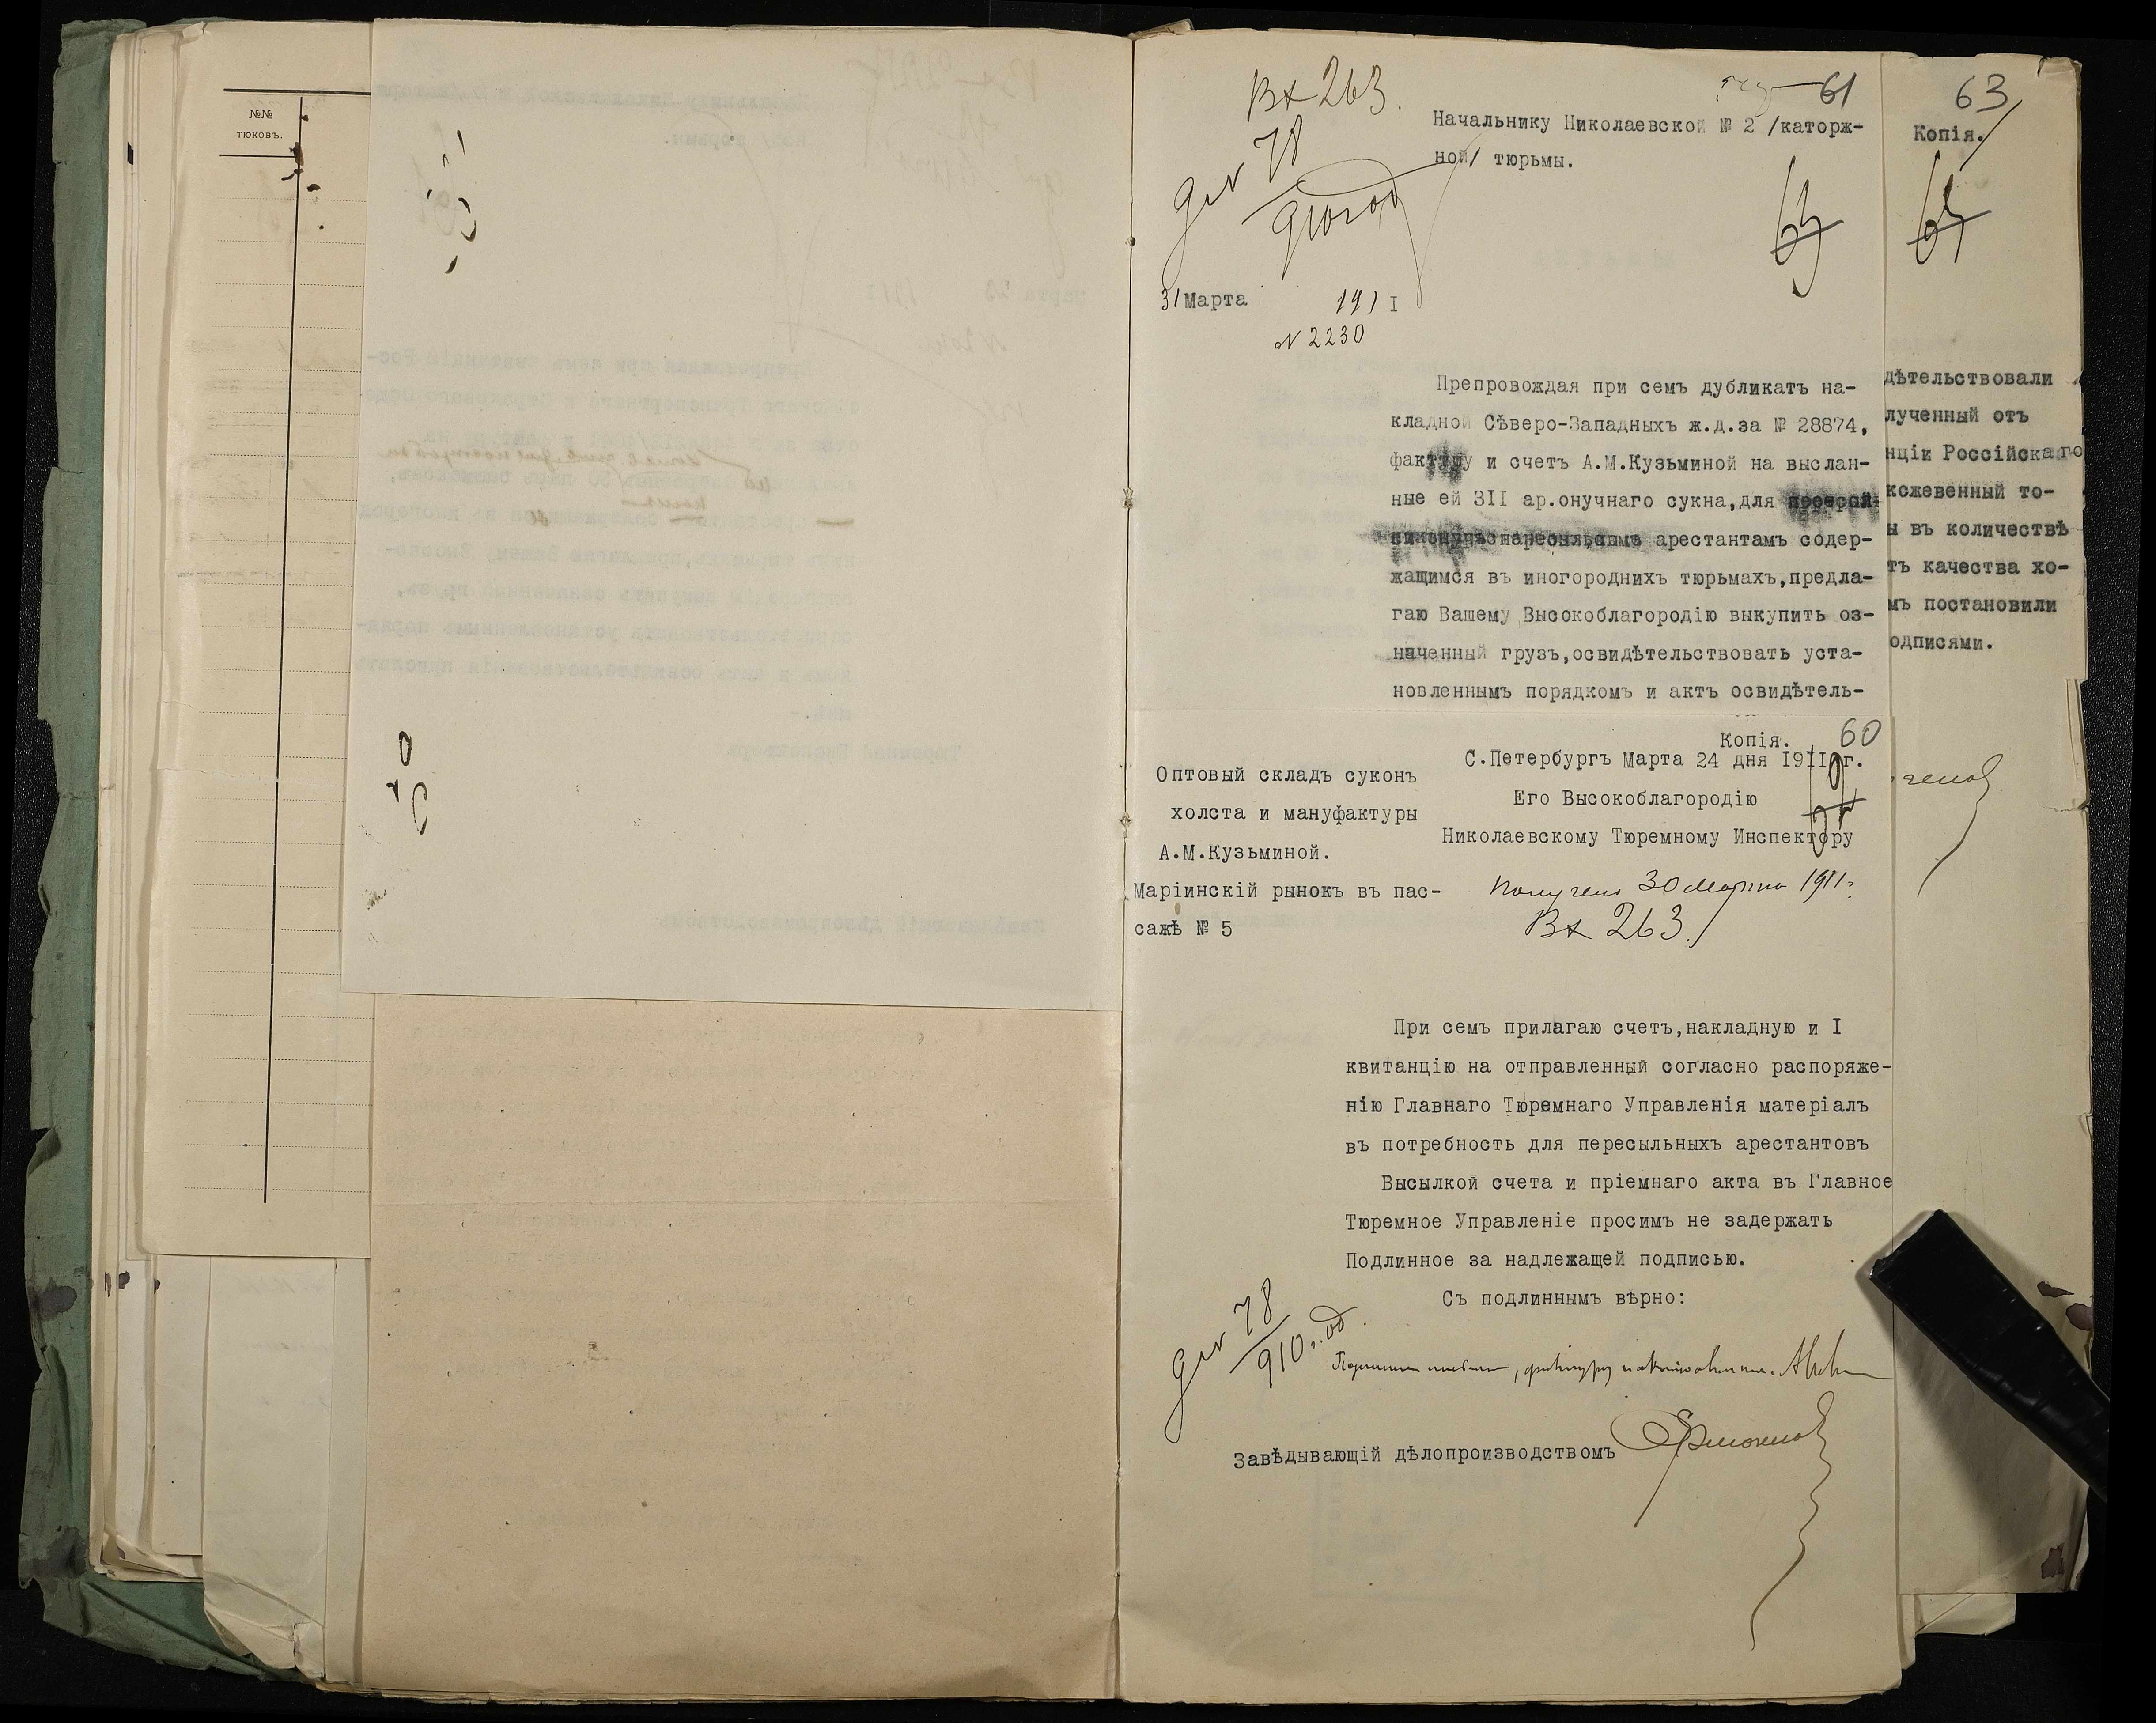 №№
тюковъ.
Вх 263.
61
Начальнику Николаевской № 2 /каторж-
ной/ тюрьмы.
31 Марта 1911
№ 2230
Препровождая при семъ дубликатъ на-
кладной Сѣверо-Западныхъ ж.д.за № 28874,
фактуру и счетъ А.М.Кузьминой на выслан-
ные ей 3II ар.онучнаго сукна,для
арестантамъ содер-
жащимся въ иногороднихъ тюрьмахъ,предла-
гаю Вашему Высокоблагородію выкупить оз-
наченный грузъ,освидѣтельствовать уста-
новленнымъ порядкомъ и актъ освидѣтель-
Копія. 60
С.Петербургъ Марта 24 дня I9II г.
Его Высокоблагородію
Николаевскому Тюремному Инспектору
Оптовый складъ суконъ
холста и мануфактуры
А.М.Кузьминой.
Маріинскій рынокъ въ пас-
сажѣ № 5
Получено 30 Марта 1911 г.
Вх 263.
При семъ прилагаю счетъ,накладную и I
квитанцію на отправленный согласно распоряже-
нію Главнаго Тюремнаго Управленія матеріалъ
въ потребность для пересыльныхъ арестантовъ
Высылкой счета и пріемнаго акта въ Главное
Тюремное Управленіе просимъ не задержать
Подлинное за надлежащей подписью.
Съ подлиннымъ вѣрно:
78
910
Завѣдывающій дѣлопроизводствомъ
63
Копія.
дѣтельствовали
лученный отъ
нціи Россійскаго
кожевенный то-
ы въ количествѣ
тъ качества хо-
мъ постановили
одписями.